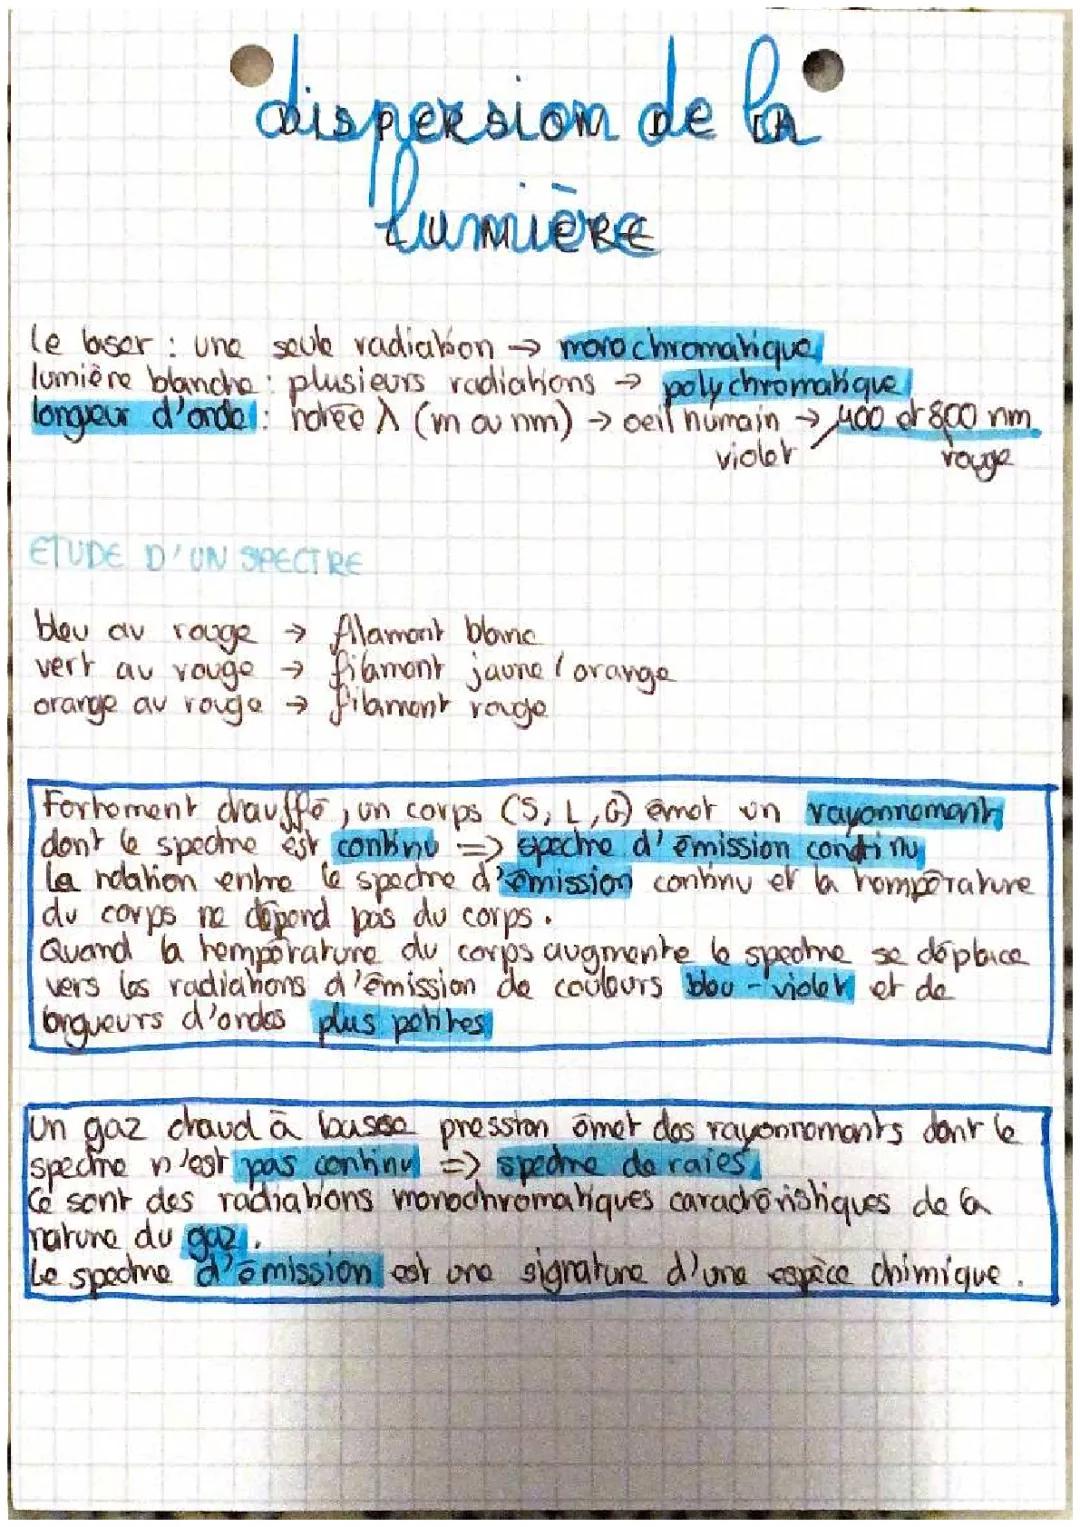 dispersion de la
lumière
le laser : une seule radiation → monochromatique
lumière blanche : plusieurs radiations → polychromatique
longueur d'onde : notée λ (m ou nm) → oeil humain → 400 et 800 nm
violet rouge
ETUDE D'UN SPECTRE
bleu au rouge → filament blanc
vert au rouge → filament jaune / orange
orange au rouge → filament rouge
Fortement chauffé, un corps (S, L, G) émet un rayonnement
dont le spectre est continu => spectre d'émission continu
La relation entre le spectre d'émission continu et la température
du corps ne dépend pas du corps.
Quand la température du corps augmente le spectre se déplace
vers les radiations d'émission de couleurs bleu - violet et de
longueurs d'ondes plus petites
Un gaz chaud à basse pression émet des rayonnements dont le
spectre n'est pas continu => spectre de raies
Ce sont des radiations monochromatiques caractéristiques de la
nature du gaz.
Le spectre d'émission est une signature d'une espèce chimique.